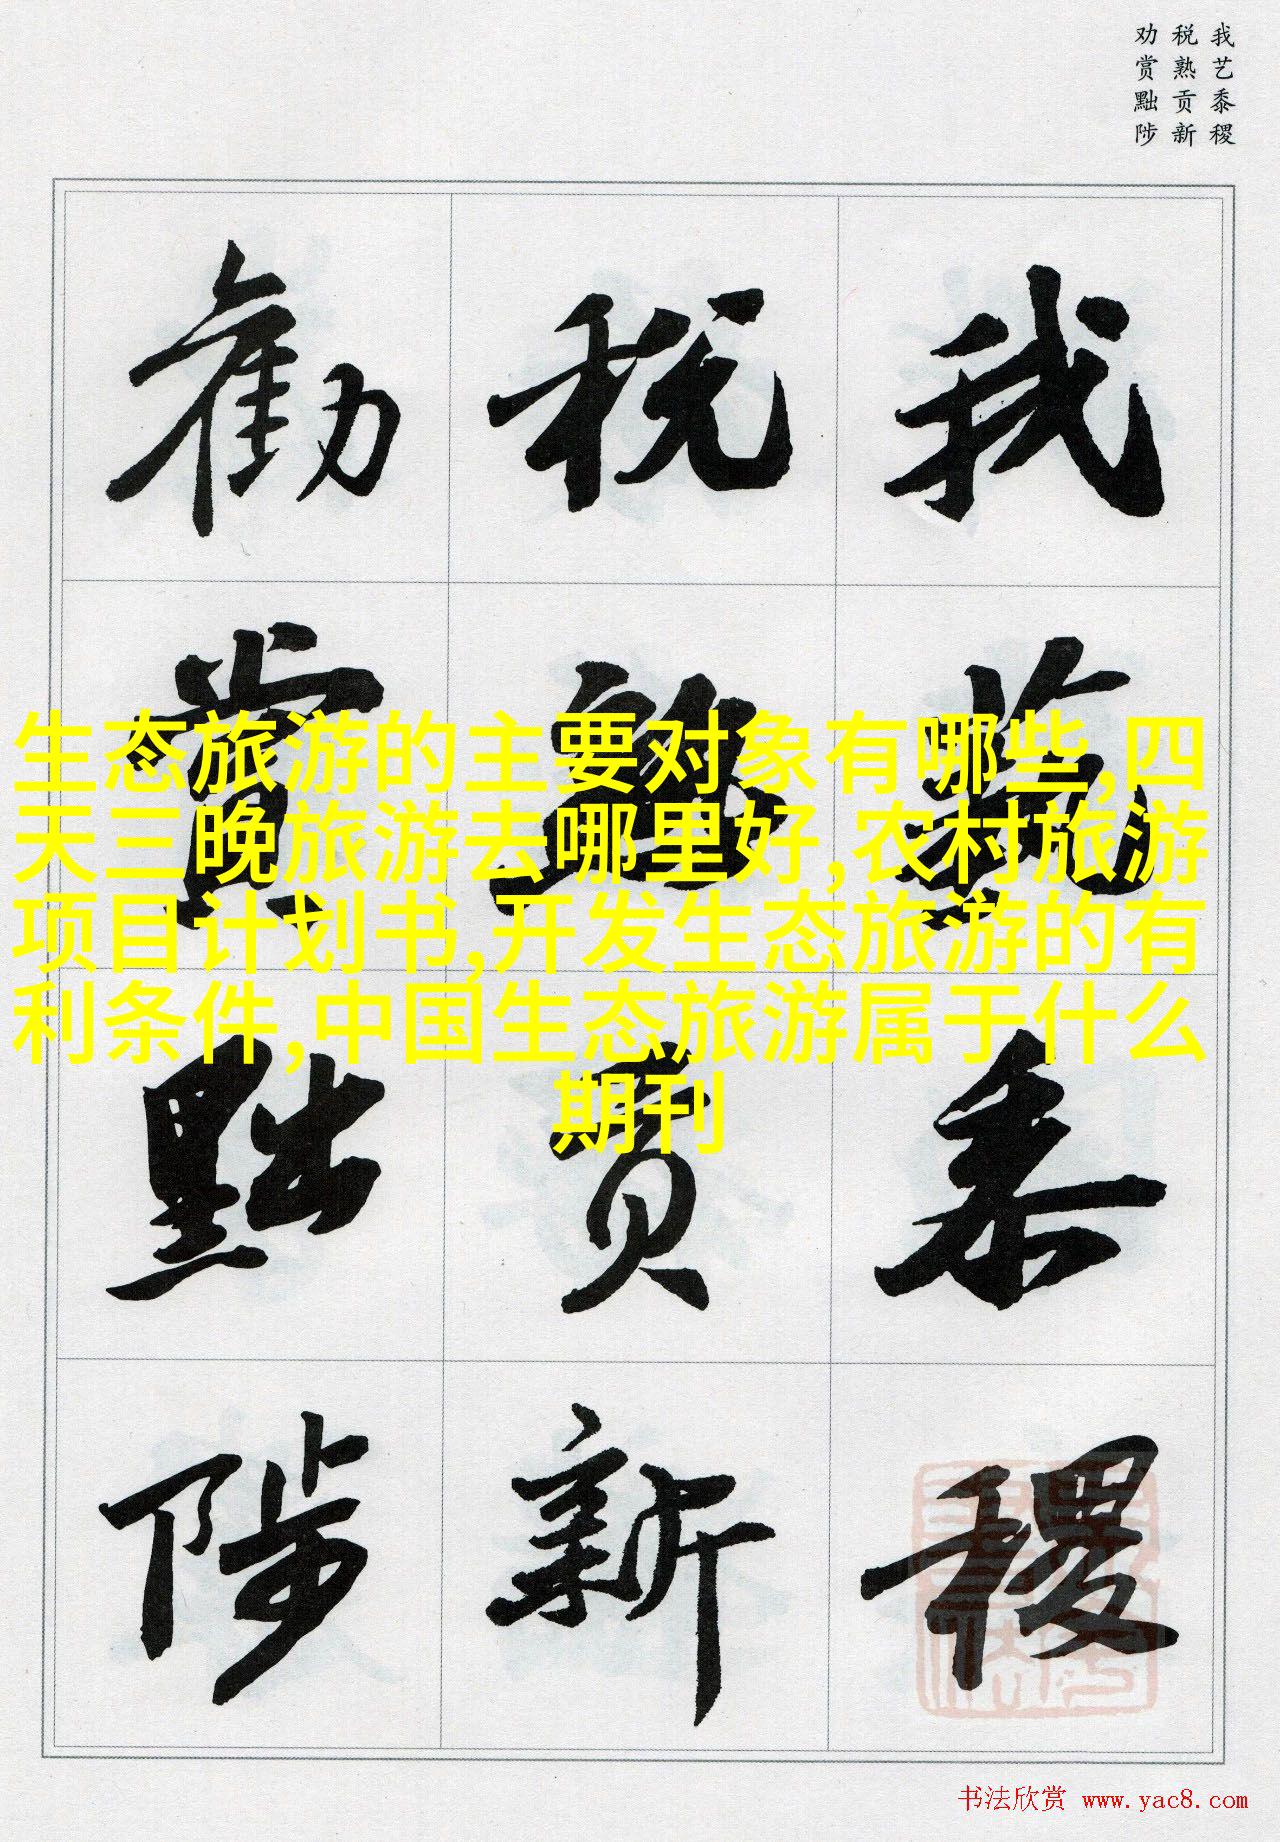 我艺黍稷
税熟贡新
劝赏黜陟
我
藝
黍
稷
税
熟
贡
新
勸
賞
黜
陟
生态旅游的主要对象有哪些,四
天三晚旅游去哪里好,农村旅游
项目计划书,开发生态旅游的有
利条件,中国生态旅游属于什么
期刊
书法欣赏 www.yac8.com